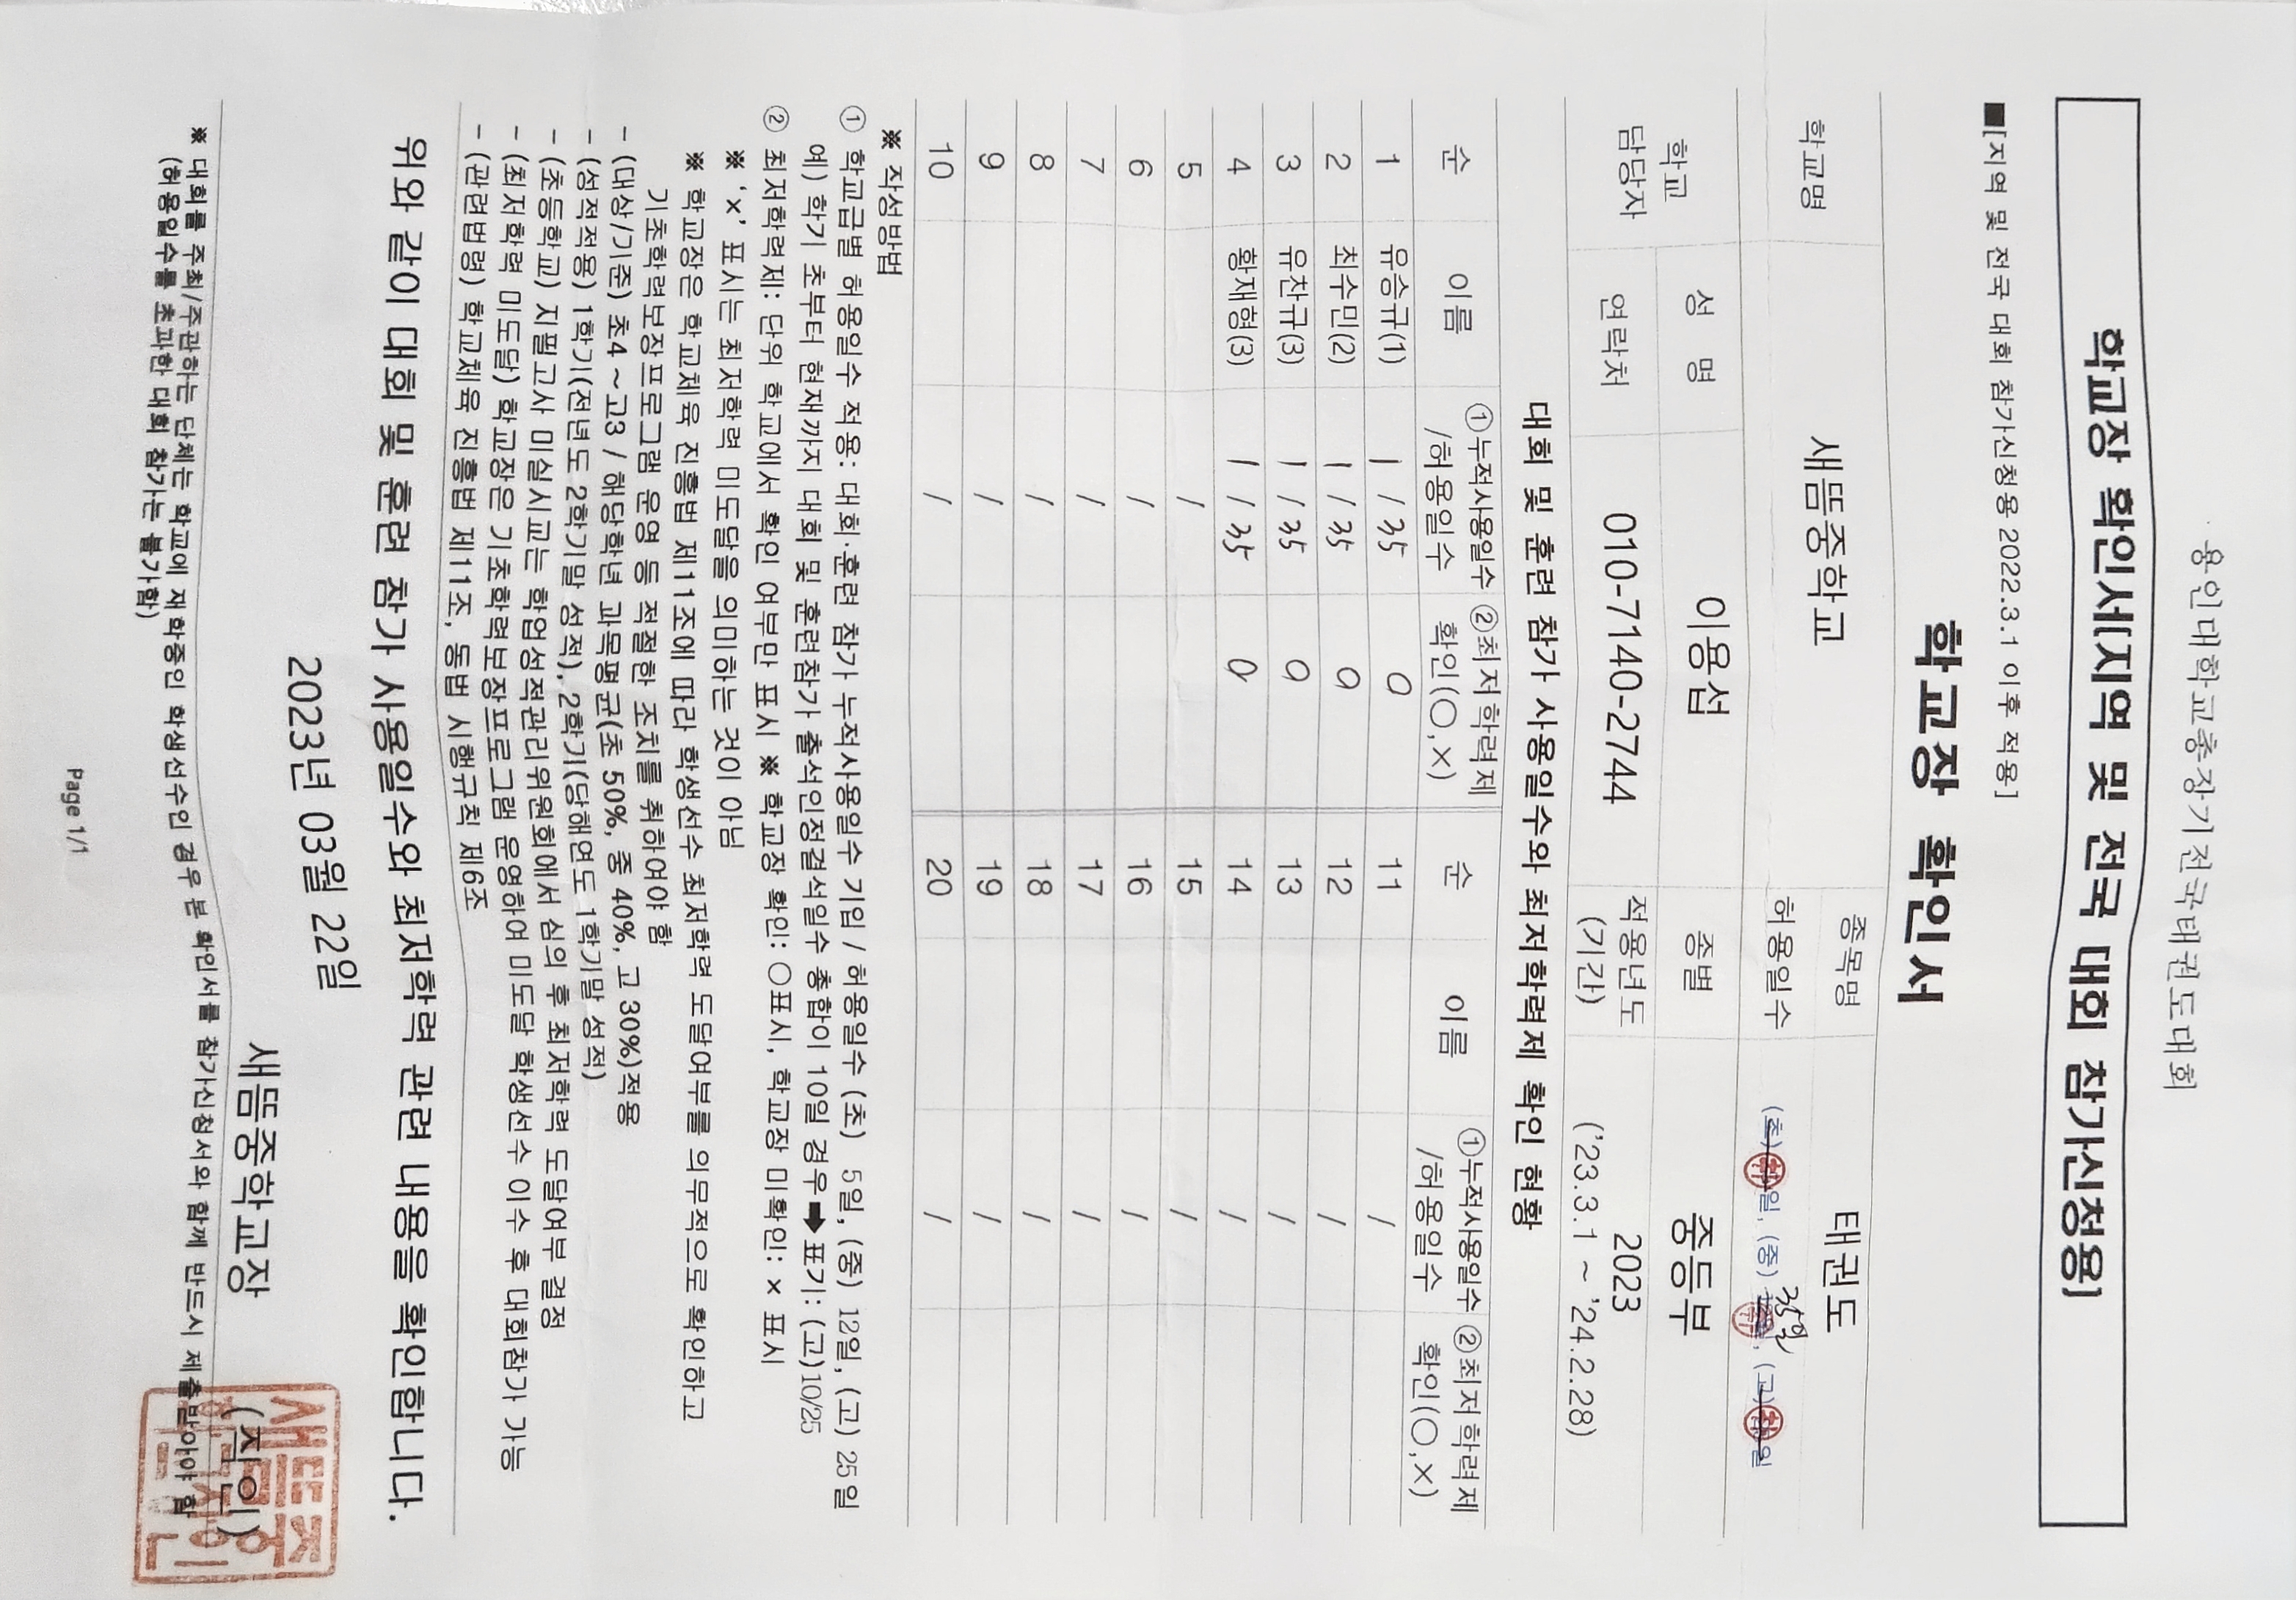 용인대학교총장기전국태권도대회
학교장 확인서[지역 및 전국 대회 참가신청용]
■[지역 및 전국 대회 참가신청용 2022.3.1 이후 적용]
학교장 확인서
학교명 새뜸중학교 종목명 태권도
허용일수 (초) 일, (중) 35일, (고) 일
학교 담당자 성 명 이용섭 종별 중등부
연락처 010-7140-2744 적용년도 (기간) 2023 ('23.3.1 ~ '24.2.28)
대회 및 훈련 참가 사용일수와 최저학력제 확인 현황
순 이름 ①누적사용일수 /허용일수 ②최저학력제 확인(○,×) 순 이름 ①누적사용일수 /허용일수 ②최저학력제 확인(○,×)
1 유승규(1) 1 / 35 O 11 /
2 최수민(2) 1 / 35 O 12 /
3 유찬규(3) 1 / 35 O 13 /
4 황재형(3) 1 / 35 O 14 /
5 / 15 /
6 / 16 /
7 / 17 /
8 / 18 /
9 / 19 /
10 / 20 /
※ 작성방법
① 학교급별 허용일수 적용: 대회·훈련 참가 누적사용일수 기입 / 허용일수 (초) 5일, (중) 12일, (고) 25일
예) 학기 초부터 현재까지 대회 및 훈련참가 출석인정결석일수 총합이 10일 경우 ➡ 표기: (고)10/25
② 최저학력제: 단위 학교에서 확인 여부만 표시 ※ 학교장 확인: ○표시, 학교장 미확인: × 표시
※ '×' 표시는 최저학력 미도달을 의미하는 것이 아님
※ 학교장은 학교체육 진흥법 제11조에 따라 학생선수 최저학력 도달여부를 의무적으로 확인하고
기초학력보장프로그램 운영 등 적절한 조치를 취하여야 함
- (대상/기준) 초4 ~고3 / 해당학년 과목평균(초 50%, 중 40%, 고 30%)적용
- (성적적용) 1학기(전년도 2학기말 성적), 2학기(당해연도 1학기말 성적)
- (초등학교) 지필고사 미실시교는 학업성적관리위원회에서 심의 후 최저학력 도달여부 결정
- (최저학력 미도달) 학교장은 기초학력보장프로그램 운영하여 미도달 학생선수 이수 후 대회참가 가능
- (관련법령) 학교체육 진흥법 제11조, 동법 시행규칙 제6조
위와 같이 대회 및 훈련 참가 사용일수와 최저학력 관련 내용을 확인합니다.
2023년 03월 22일
새뜸중학교장 (직인)
※ 대회를 주최/주관하는 단체는 학교에 재학중인 학생선수인 경우 본 확인서를 참가신청서와 함께 반드시 제출받아야 함
(허용일수를 초과한 대회 참가는 불가함)
Page 1/1